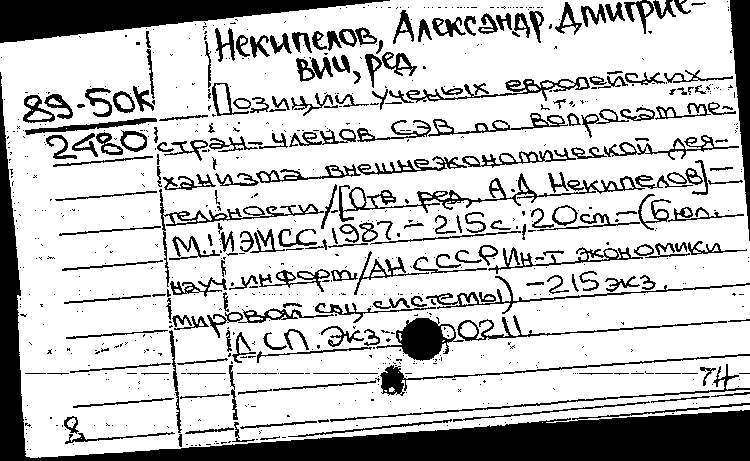 Некипелов, Александр Дмитрие-
вич, ред.
89-50к
2480
Позиции ученых европейских
стран-членов СЭВ по вопросам ме-
ханизма внешнеэкономической дея-
тельности/[Отв. ред. А.Д. Некипелов]-
М.: ИЭМСС, 1987.-215с.; 20см.-(Бюл.
науч. информ./АН СССР, Ин-т экономики
мировой соц. системы).-215экз.
Д, СП. Экз: 00211.
7Н
8